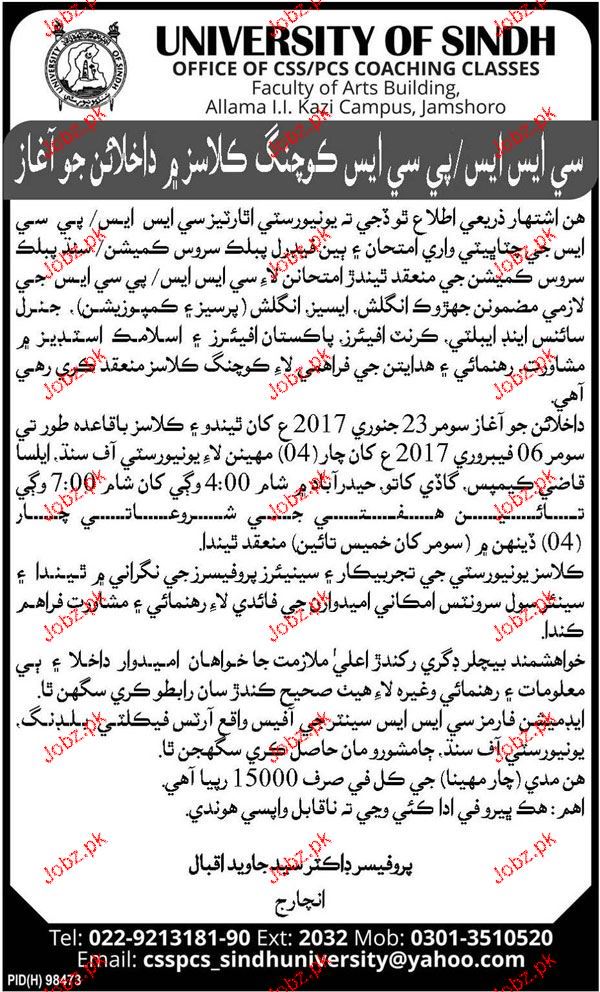 UNIVERSITY OF SINDH
OFFICE OF CSS/PCS COACHING CLASSES
Faculty of Arts Building,
Allama I.I. Kazi Campus, Jamshoro
سي ايس ايس/پي سي ايس ڪوچنگ ڪلاسز ۾ داخلائن جو آغاز
هن اشتهار ذريعي اطلاع ٿو ڏجي ته يونيورسٽي اٿارٽيز سي ايس ايس/ پي سي
ايس جي چٽاڀيٽي واري امتحان ۽ ٻين فيڊرل پبلڪ سروس ڪميشن/ سنڌ پبلڪ
سروس ڪميشن جي منعقد ٿيندڙ امتحانن لاءِ سي ايس ايس/ پي سي ايس جي
لازمي مضمونن جهڙوڪ انگلش، ايسيز، انگلش (پرسيز ۽ ڪمپوزيشن)، جنرل
سائنس اينڊ ايبلٽي، ڪرنٽ افيئرز، پاڪستان افيئرز ۽ اسلامڪ اسٽڊيز ۾
مشاورت، رهنمائي ۽ هدايتن جي فراهمي لاءِ ڪوچنگ ڪلاسز منعقد ڪري رهي
آهي.
داخلائن جو آغاز سومر 23 جنوري 2017 ع کان ٿيندو ۽ ڪلاسز باقاعده طور تي
سومر 06 فيبروري 2017 ع کان چار (04) مهينن لاءِ يونيورسٽي آف سنڌ، ايلسا
قاضي ڪيمپس، گاڏي کاتو، حيدرآباد ۾ شام 4:00 وڳي کان شام 7:00 وڳي
تائين هفتي جي شروعاتي چار
(04) ڏينهن ۾ (سومر کان خميس تائين) منعقد ٿيندا.
ڪلاسز يونيورسٽي جي تجربيڪار ۽ سينيئرز پروفيسرز جي نگراني ۾ ٿيندا ۽
سينئر سول سرونٽس امڪاني اميدوارن جي فائدي لاءِ رهنمائي ۽ مشاورت فراهم
ڪندا.
خواهشمند بيچلر ڊگري رکندڙ اعليٰ ملازمت جا خواهان اميدوار داخلا ۽ ٻي
معلومات ۽ رهنمائي وغيره لاءِ هيٺ صحيح ڪندڙ سان رابطو ڪري سگهن ٿا.
ايڊميشن فارمز سي ايس ايس سينٽر جي آفيس واقع آرٽس فيڪلٽي بلڊنگ،
يونيورسٽي آف سنڌ، ڄامشورو مان حاصل ڪري سگهجن ٿا.
هن مدي (چار مهينا) جي ڪل في صرف 15000 رپيا آهي.
اهم: هڪ ڀيرو في ادا ڪئي وڃي ته ناقابل واپسي هوندي.
پروفيسر ڊاڪٽر سيد جاويد اقبال
انچارج
Tel: 022-9213181-90 Ext: 2032 Mob: 0301-3510520
Email: csspcs_sindhuniversity@yahoo.com
PID(H) 98473